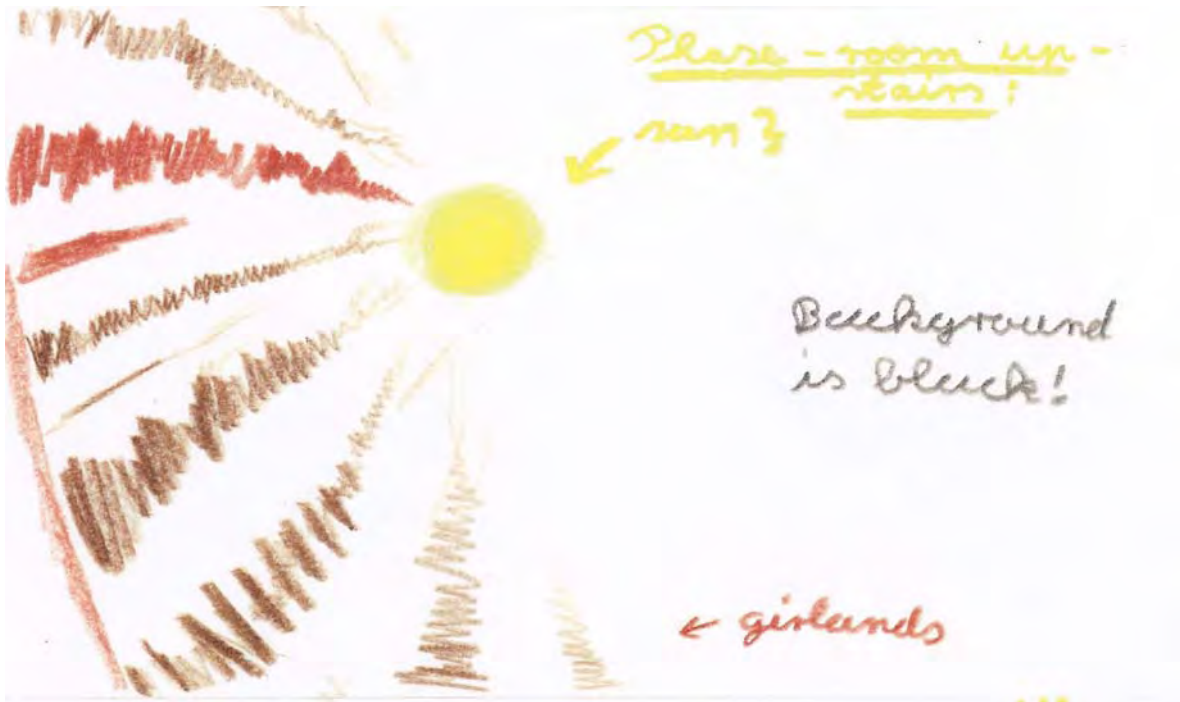 Phase-room up-
stairs:
sun?
Background
is black!
← girlands